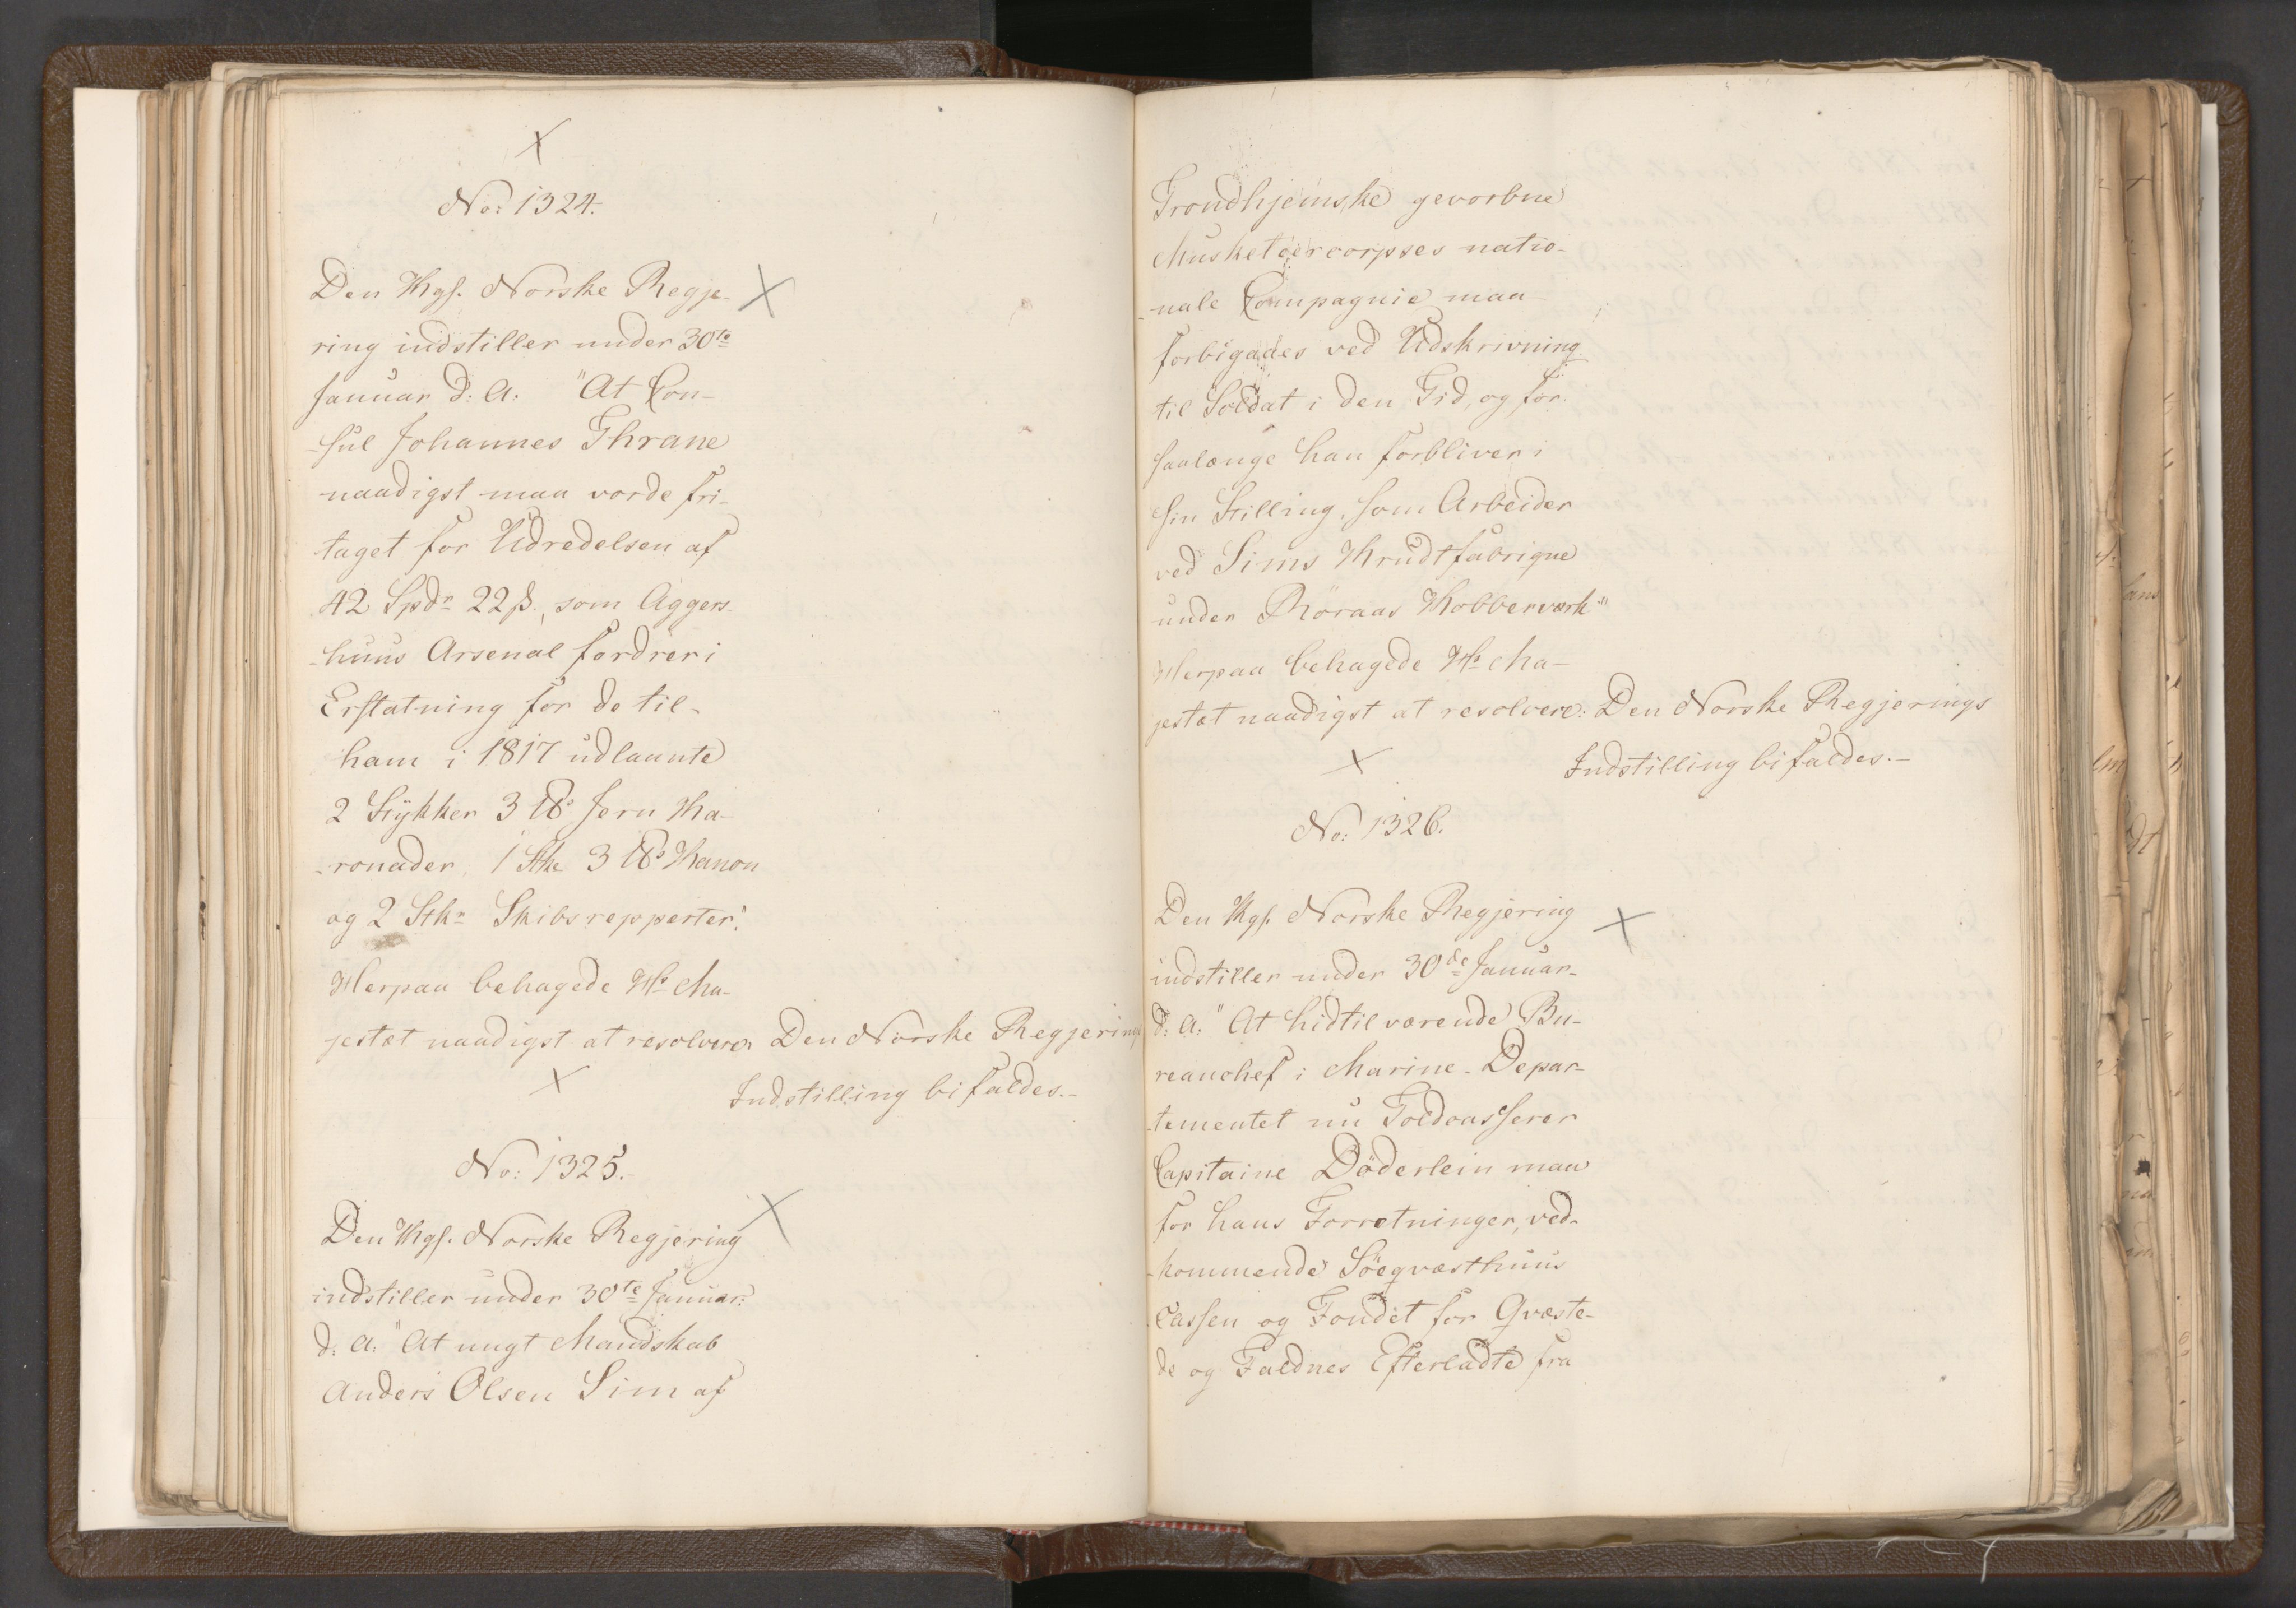 No: 1324.
Den Kgs. Norske Regje-
ring indstiller under 30te
Januar d: A: "At Con-
sul Johannes Thrane
naadigst maa vorde fri-
taget for Udredelsen af
42 Spdr 22 ß., som Aggers-
huus Arsenal fordrer i
Erstatning for de til-
ham i 1817 udlaante
2 Stykker 3 ℔s Jern Ka-
ronader, 1 Stk 3 ℔s Kanon
og 2 Stkr Skibsrapperter".
Herpaa behagede Hs Ma-
jestæt naadigst at resolvere: Den Norske Regjerings
Indstilling bifaldes.-
No: 1325.-
Den Kgs. Norske Regjering
indstiller under 30te Januar
d: A: "At ungt Mandskab
Anders Olsen Sim af
Trondhjemske gevorbne
Musketeercorpses natio-
nale Compagnie maa
forbigaaes ved Udskrivning
til Soldat i den Tid, og for
saalænge han forbliver i
sin Stilling, som Arbeider
ved Sims Krudtfabrique
under Röraas Kobberværk"
Herpaa behagede Hs Ma-
jestæt naadigst at resolvere: Den Norske Regjerings
Indstilling bifaldes.-
No: 1326.
Den Kgs. Norske Regjering
indstiller under 30de Januar
d: A: "At hidtil værende Bu-
reauchef i Marine-Depar-
tementet nu Toldcasserer
Capitaine Döderlein maa
for hans Forretninger, ved-
kommende Söeqvæsthuus
Cassen og Fondet for Qvæste-
de og Faldnes Efterladte fra